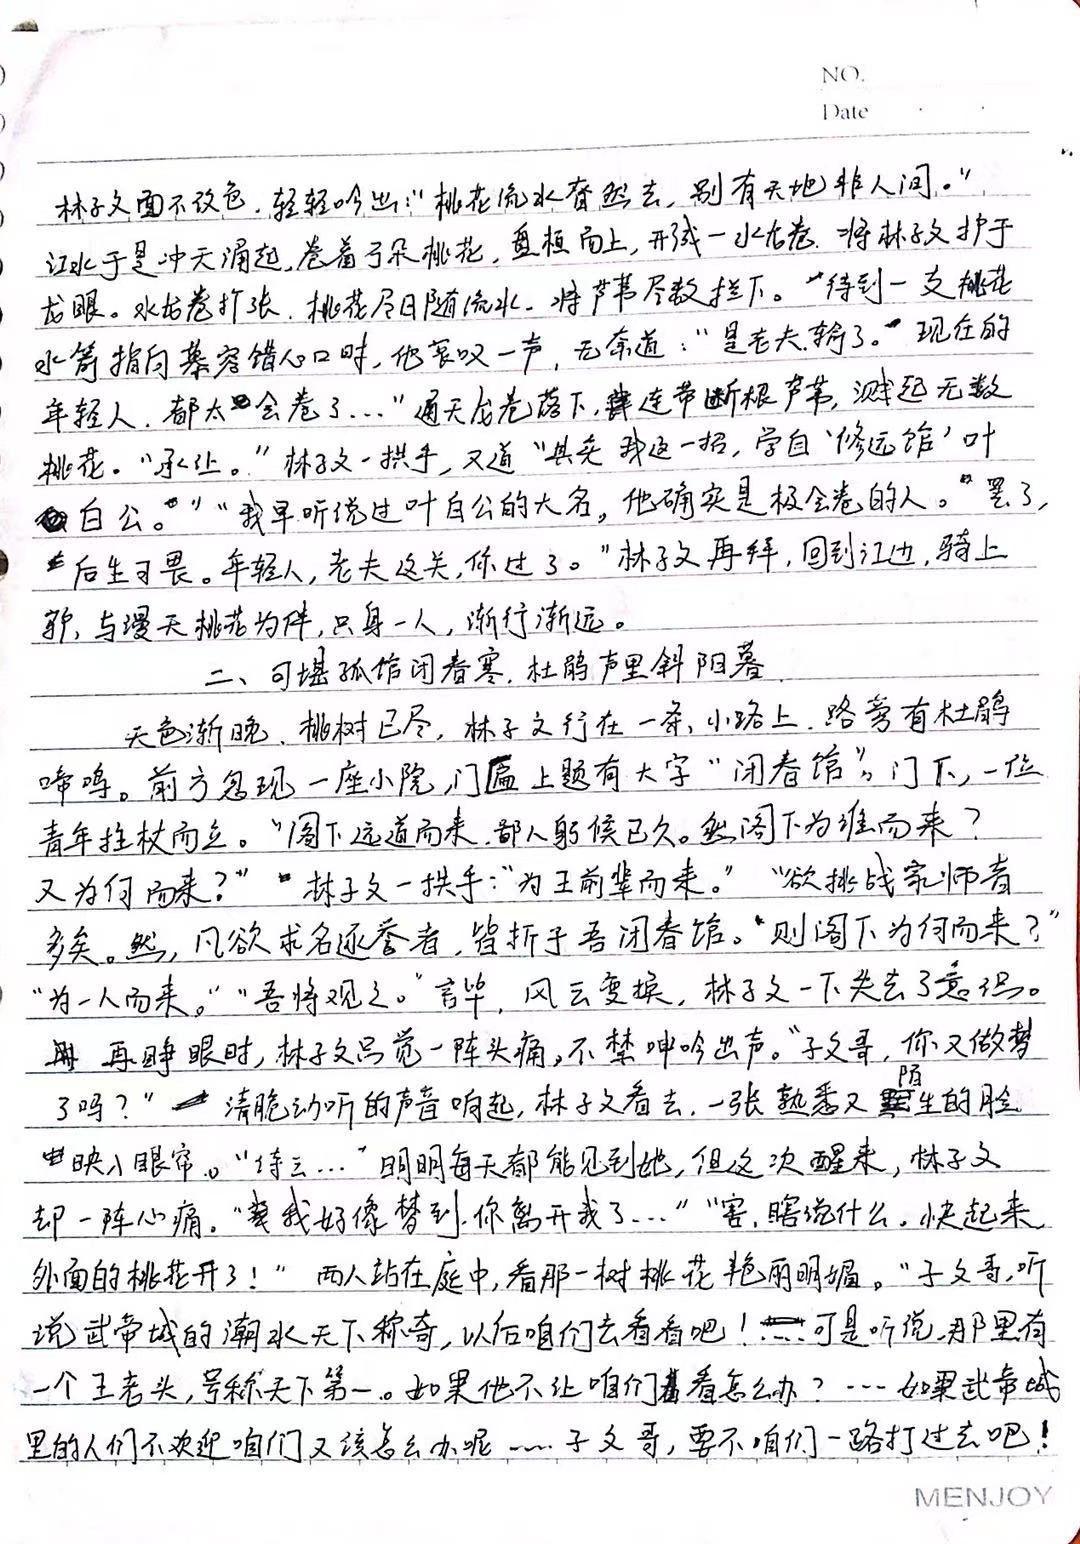 NO.
Date
林子文面不改色，轻轻吟出："桃花流水杳然去，别有天地非人间。"
江水于是冲天涌起，卷着朵桃花，盘桓而上，形成一水龙卷，将林子文护于
龙眼。水龙卷扩张，桃花尽日随流水，将芦苇尽数拦下。待到一支桃花
水箭指向慕容错心口时，他哀叹一声，无奈道："是老夫输了。现在的
年轻人，都太会卷了…"通天龙卷落下，连带断根芦苇，溅起无数
桃花。"承让。"林子文一拱手，又道"其实我这一招，学自'修远馆'叶
白公。""我早听说过叶白公的大名，他确实是极会卷的人。罢了，
后生可畏。年轻人，老夫这关，你过了。"林子文再拜，回到江边，骑上
驴，与漫天桃花为伴，只身一人，渐行渐远。
二、可堪孤馆闭春寒，杜鹃声里斜阳暮
天色渐晚，桃树已尽，林子文行在一条小路上，路旁有杜鹃
啼鸣。前方忽现一座小院，门匾上题有大字"闭春馆"。门下，一位
青年拄杖而立。"阁下远道而来，鄙人躬候已久。然阁下为谁而来？
又为何而来？"林子文一拱手："为王前辈而来。""欲挑战家师者
多矣。然，凡欲求名逐誉者，皆折于吾闭春馆。则阁下为何而来？"
"为一人而来。""吾将观之。"言毕，风云变换，林子文一下失去了意识。
再睁眼时，林子文只觉一阵头痛，不禁呻吟出声。"子文哥，你又做梦
了吗？"清脆动听的声音响起，林子文看去，一张熟悉又陌生的脸
映入眼帘。"诗云…"明明每天都能见到她，但这次醒来，林子文
却一阵心痛。"我好像梦到你离开我了…""害，瞎说什么。快起来，
外面的桃花开了！"两人站在庭中，看那一树桃花艳丽明媚。"子文哥，听
说武帝城的潮水天下称奇，以后咱们去看看吧！可是听说，那里有
一个王老头，号称天下第一。如果他不让咱们看怎么办？…如果武帝城
里的人们不欢迎咱们又该怎么办呢……子文哥，要不咱们一路打过去吧！
MENJOY